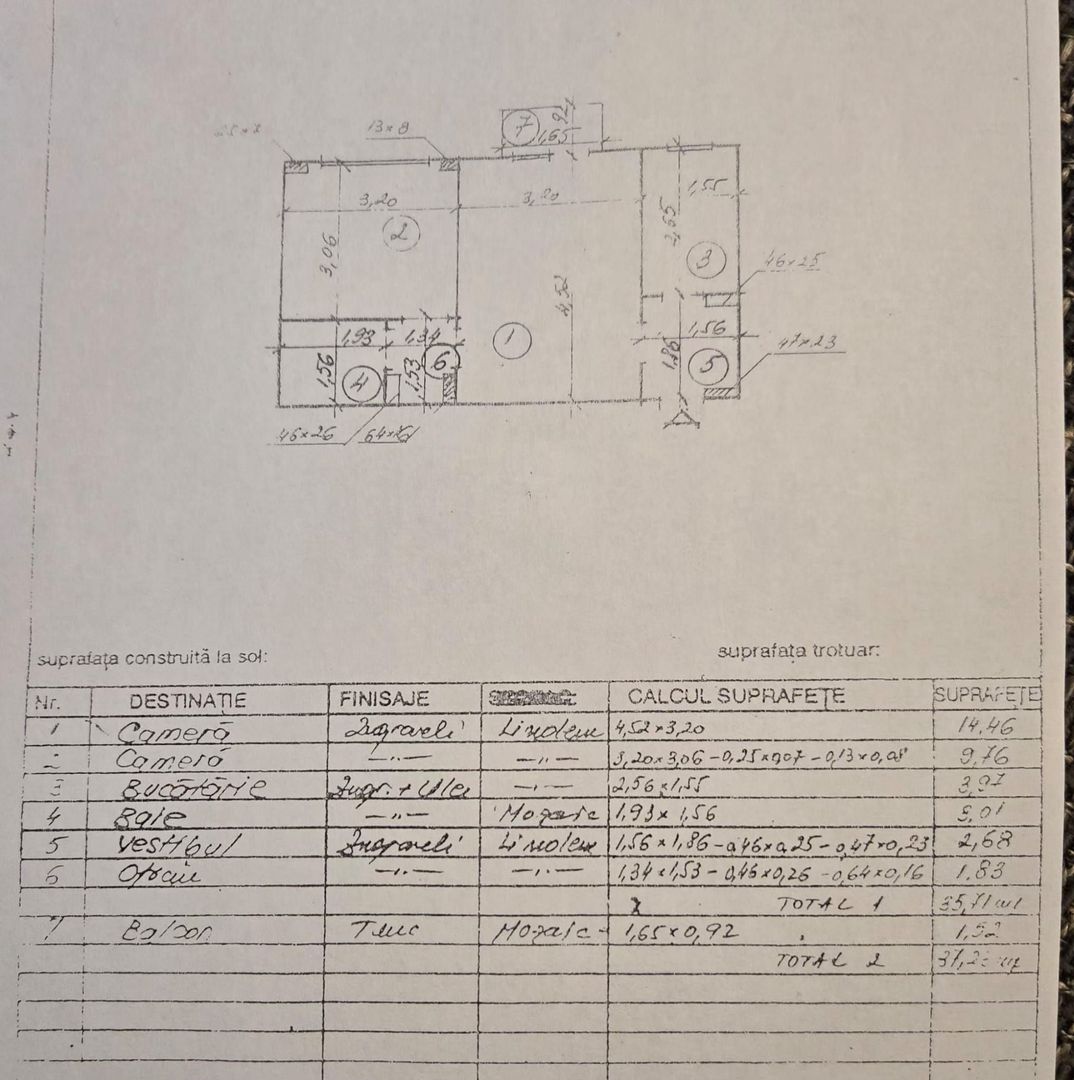 13×8
7
92
1,65
3,20
3,20
1,55
2
3,06
2,65
3
46×25
4,52
1,93
1,34
1
1,56
1,56
4
1,53
6
1,86
5
47×23
46×26
64×16
suprafața construită la sol:
suprafața trotuar:
Nr. DESTINAȚIE FINISAJE CALCUL SUPRAFEȚE SUPRAFEȚE
1 Cameră Zugraveli Linoleu 4,52×3,20 14,46
2 Cameră —,,— —,,— 3,20×3,06 - 0,25×0,07 - 0,13×0,08 9,76
3 Bucătărie Zugr. + Ulei —,,— 2,56×1,55 3,97
4 Baie —,,— Mozaic 1,93×1,56 3,01
5 Vestibul Zugraveli Linoleu 1,56×1,86 - 0,46×0,25 - 0,47×0,23 2,68
6 —,,— —,,— 1,34×1,53 - 0,46×0,26 - 0,64×0,16 1,83
TOTAL 1 35,71
7 Balcon Mozaic 1,65×0,92 1,52
TOTAL 2